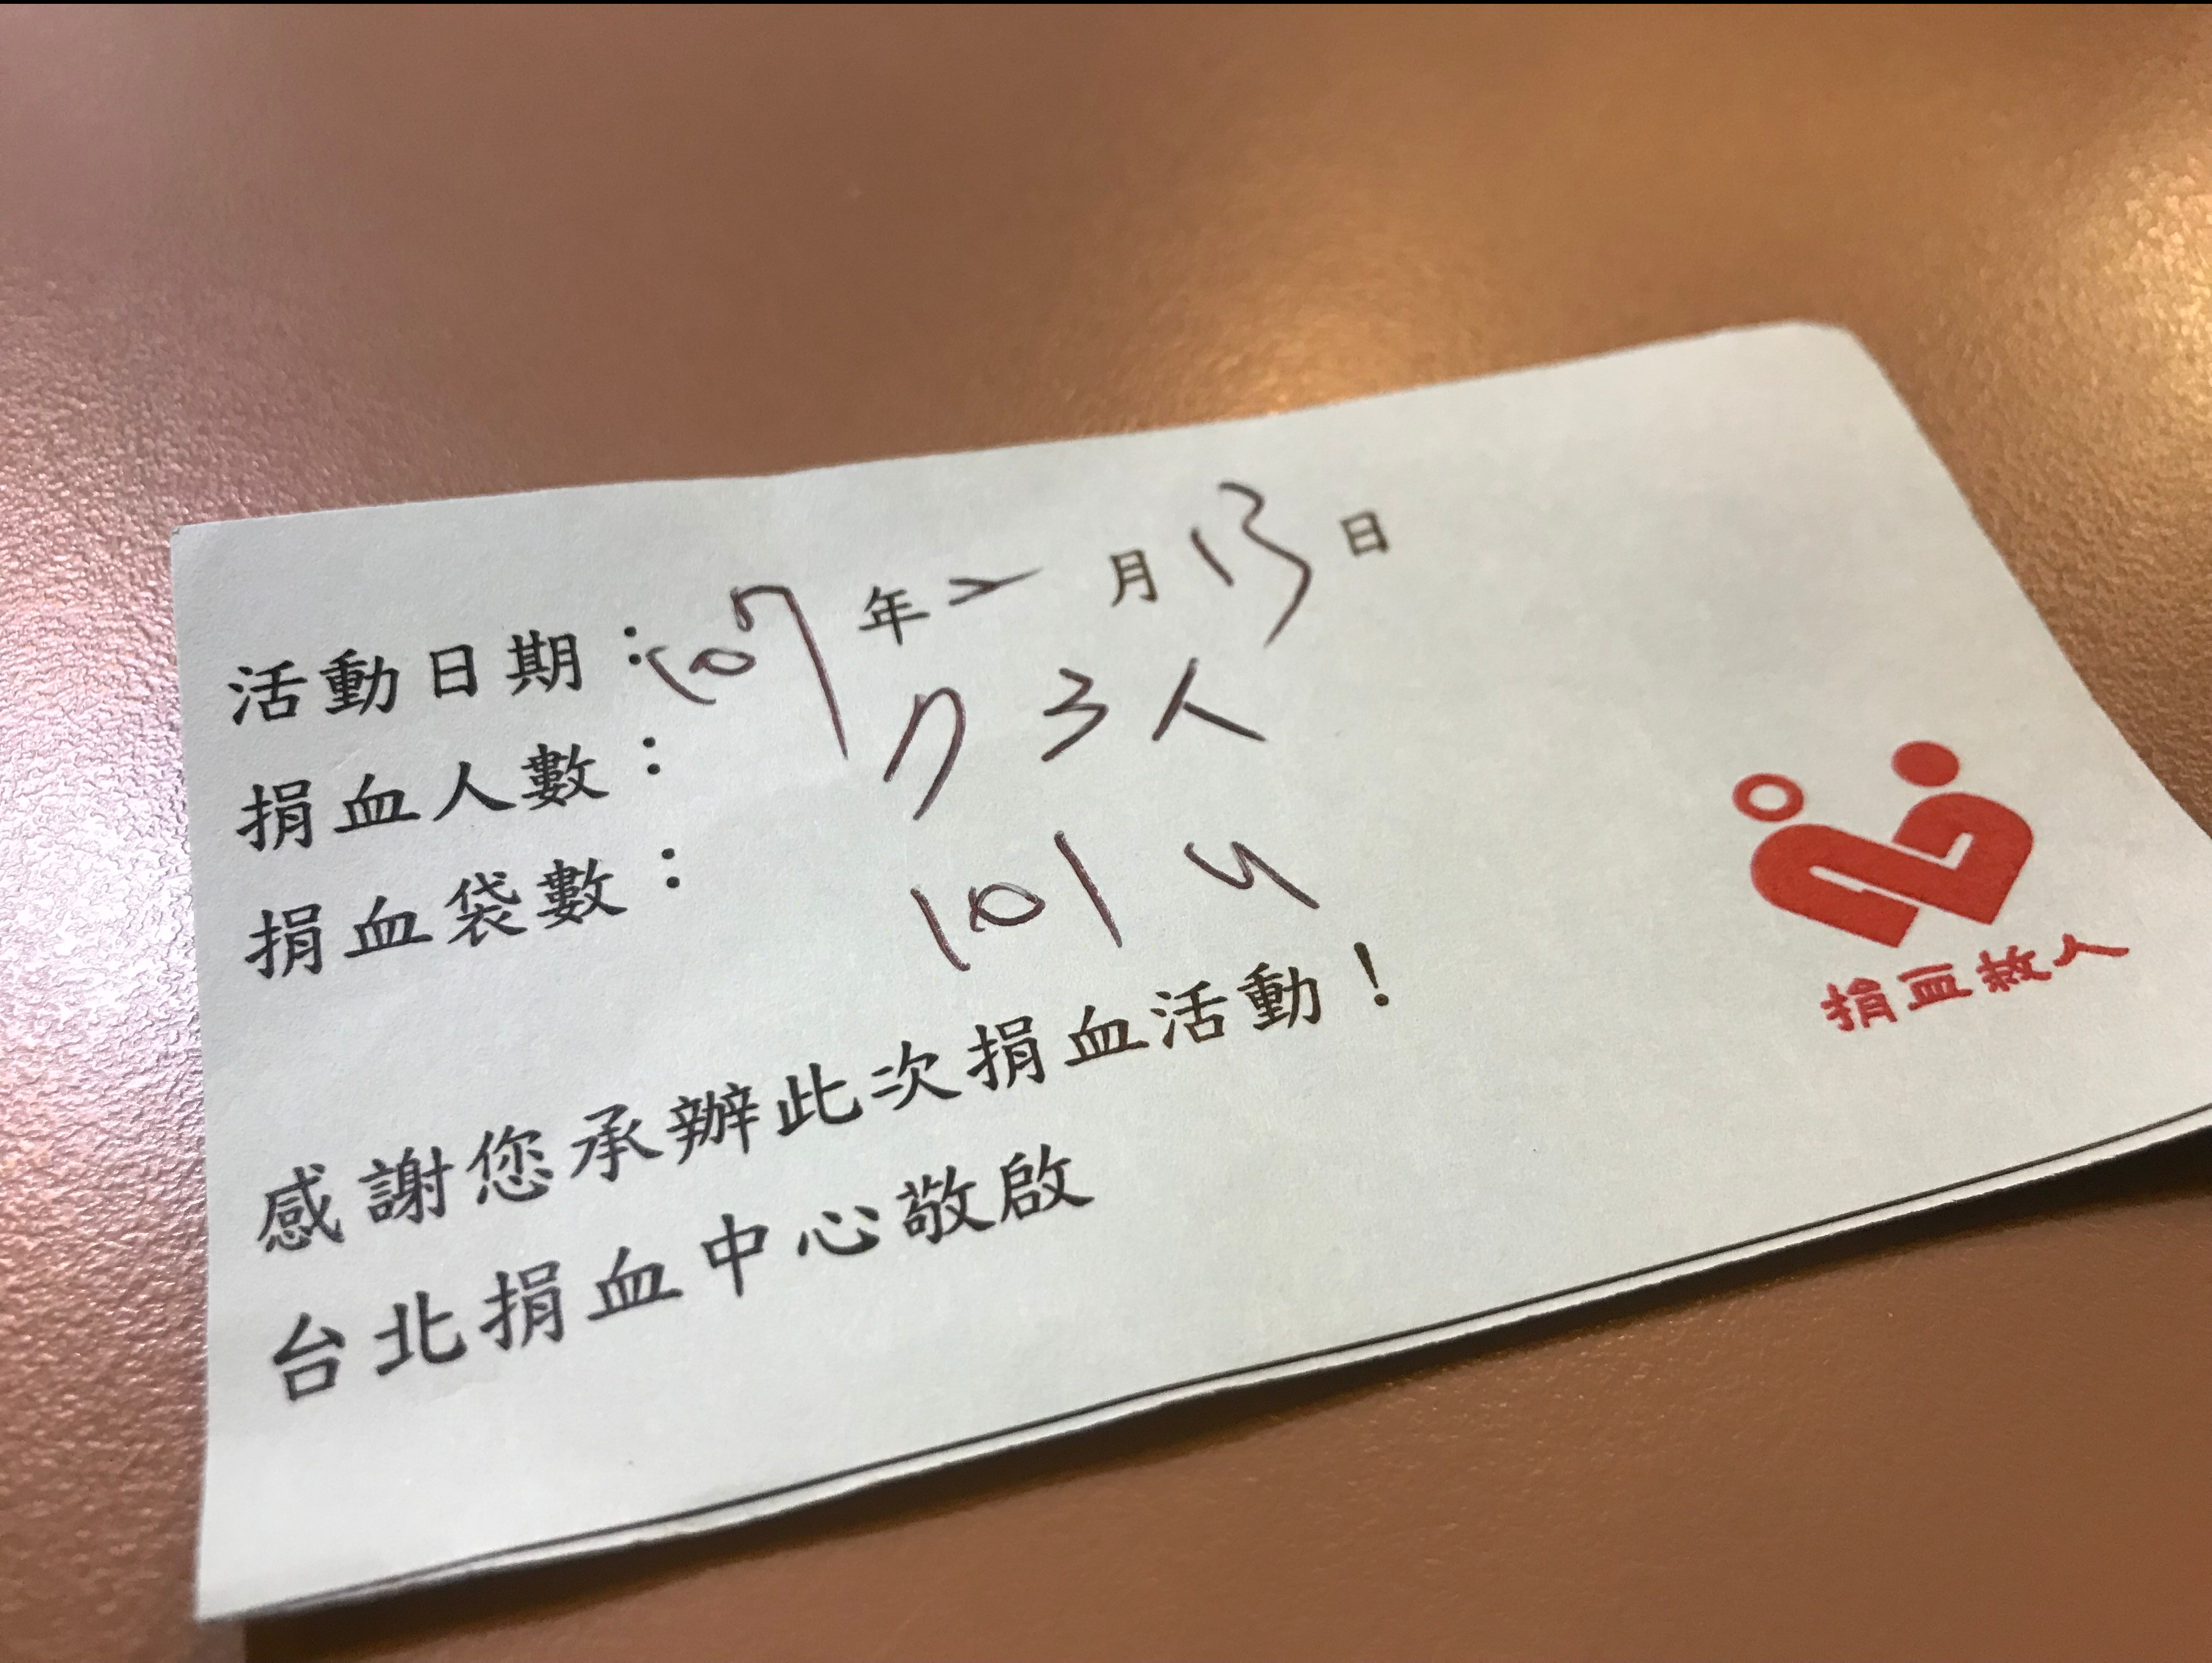 活動日期：107年2月13日
捐血人數：73人
捐血袋數：101 U
感謝您承辦此次捐血活動！
台北捐血中心敬啟
捐血救人